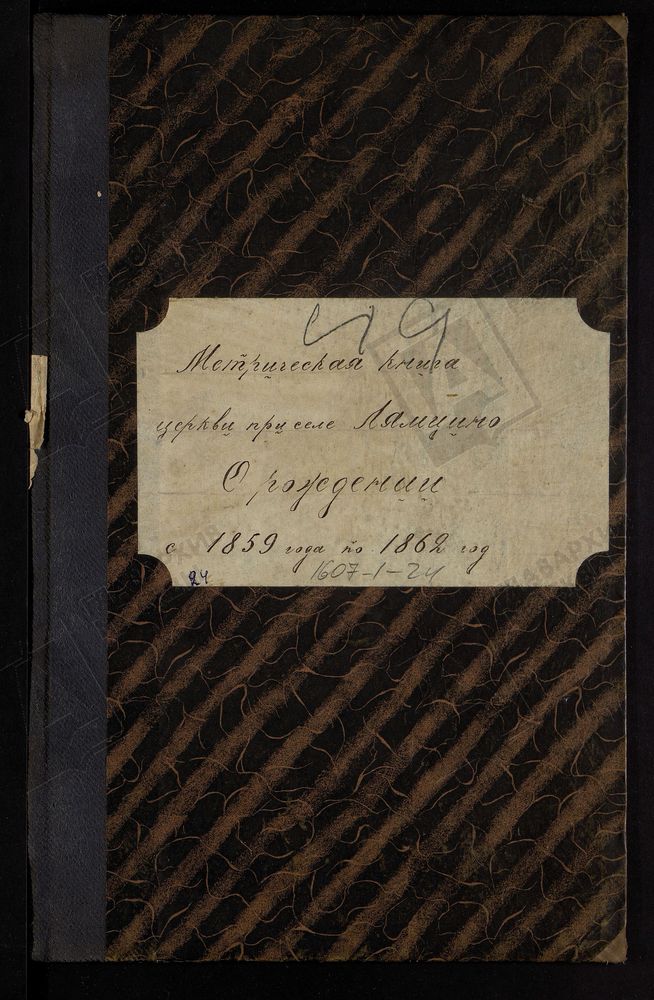 19
Метрическая книга
церкви при селе Лямцино
О рождении
с 1859 года по 1862 год
24 1607-1-24